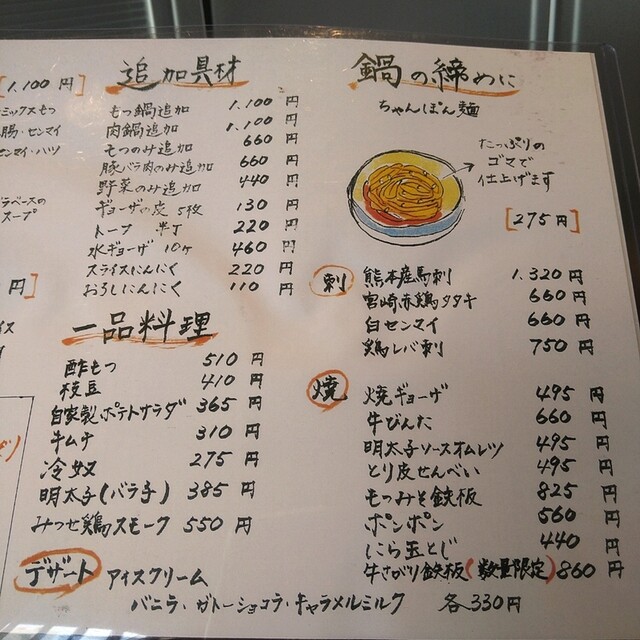 [1.100円]
ミックスもつ
腸・センマイ
センマイ・ハツ
ラベースの
スープ
円]
追加具材
もつ鍋追加 1.100円
肉鍋追加 1.100円
もつのみ追加 660円
豚バラ肉のみ追加 660円
野菜のみ追加 440円
ギョーザの皮 5枚 130円
トーフ 半丁 220円
水ギョーザ 10ケ 460円
スライスにんにく 220円
おろしにんにく 110円
一品料理
酢もつ 510円
枝豆 410円
自家製ポテトサラダ 365円
牛ムチ 310円
冷奴 275円
明太子(バラ子) 385円
みつせ鶏スモーク 550円
デザート アイスクリーム
バニラ・ガトーショコラ・キャラメルミルク 各330円
鍋の締めに
ちゃんぽん麺
たっぷりの
ゴマで
仕上げます
[275円]
刺 熊本産馬刺 1.320円
宮崎赤鶏タタキ 660円
白センマイ 660円
鶏レバ刺 750円
焼 焼ギョーザ 495円
牛びんた 660円
明太子ソースオムレツ 495円
とり皮せんべい 495円
もつみそ鉄板 825円
ポンポン 560円
にら玉とじ 440円
牛さがり鉄板(数量限定) 860円